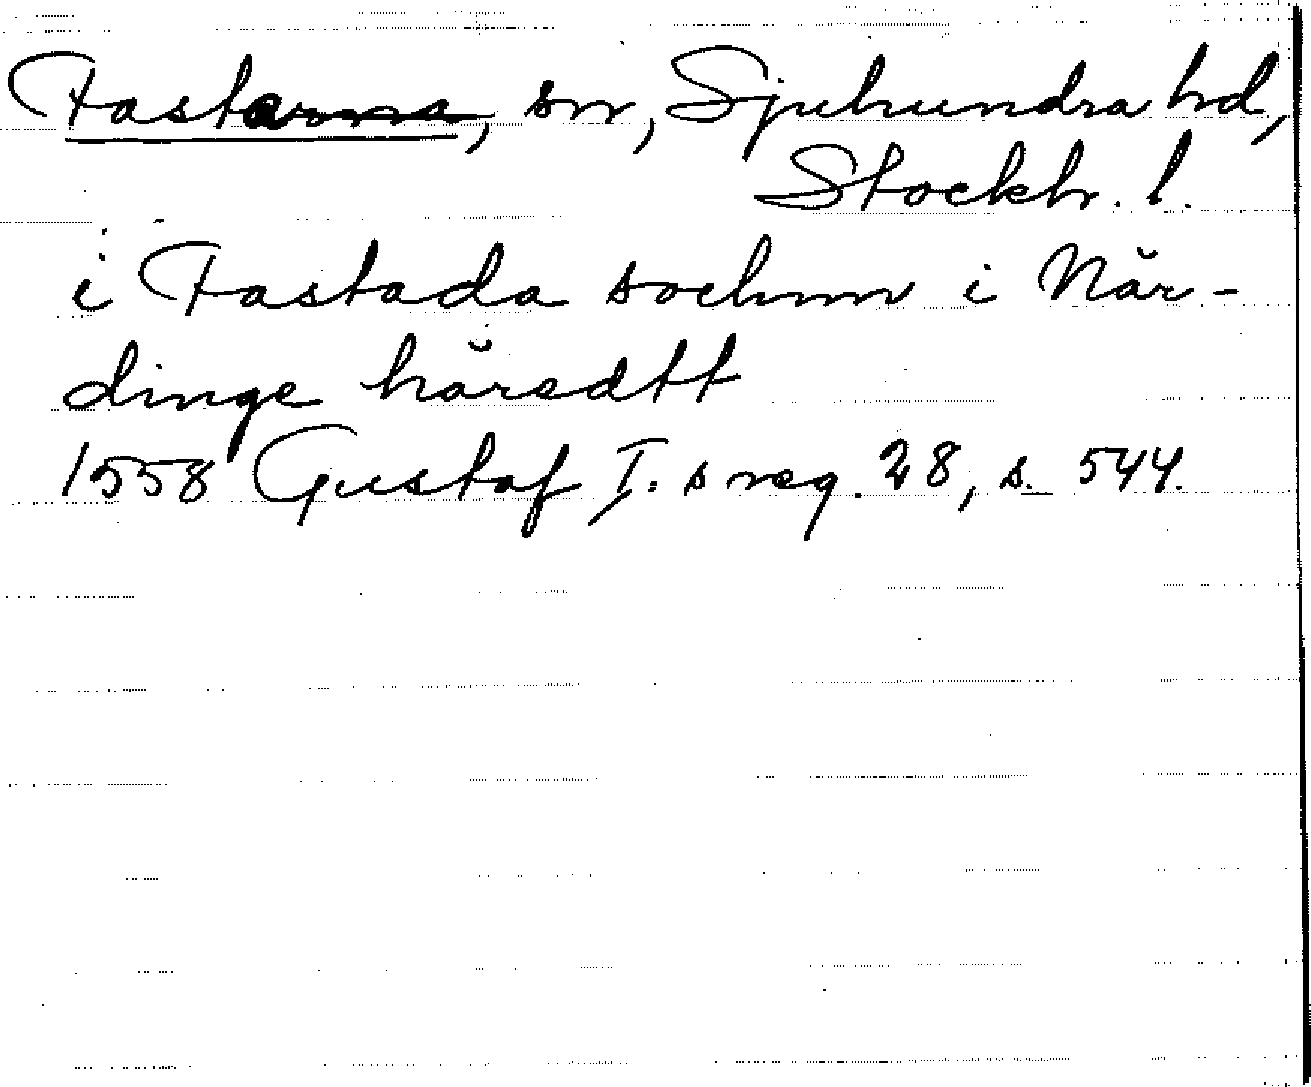 Fasterna, sn, Sjuhundra hd,
Stockh. l.
i Fastada sochnn i När-
dinge häradtt
1558 Gustaf I:s reg. 28, s. 544.